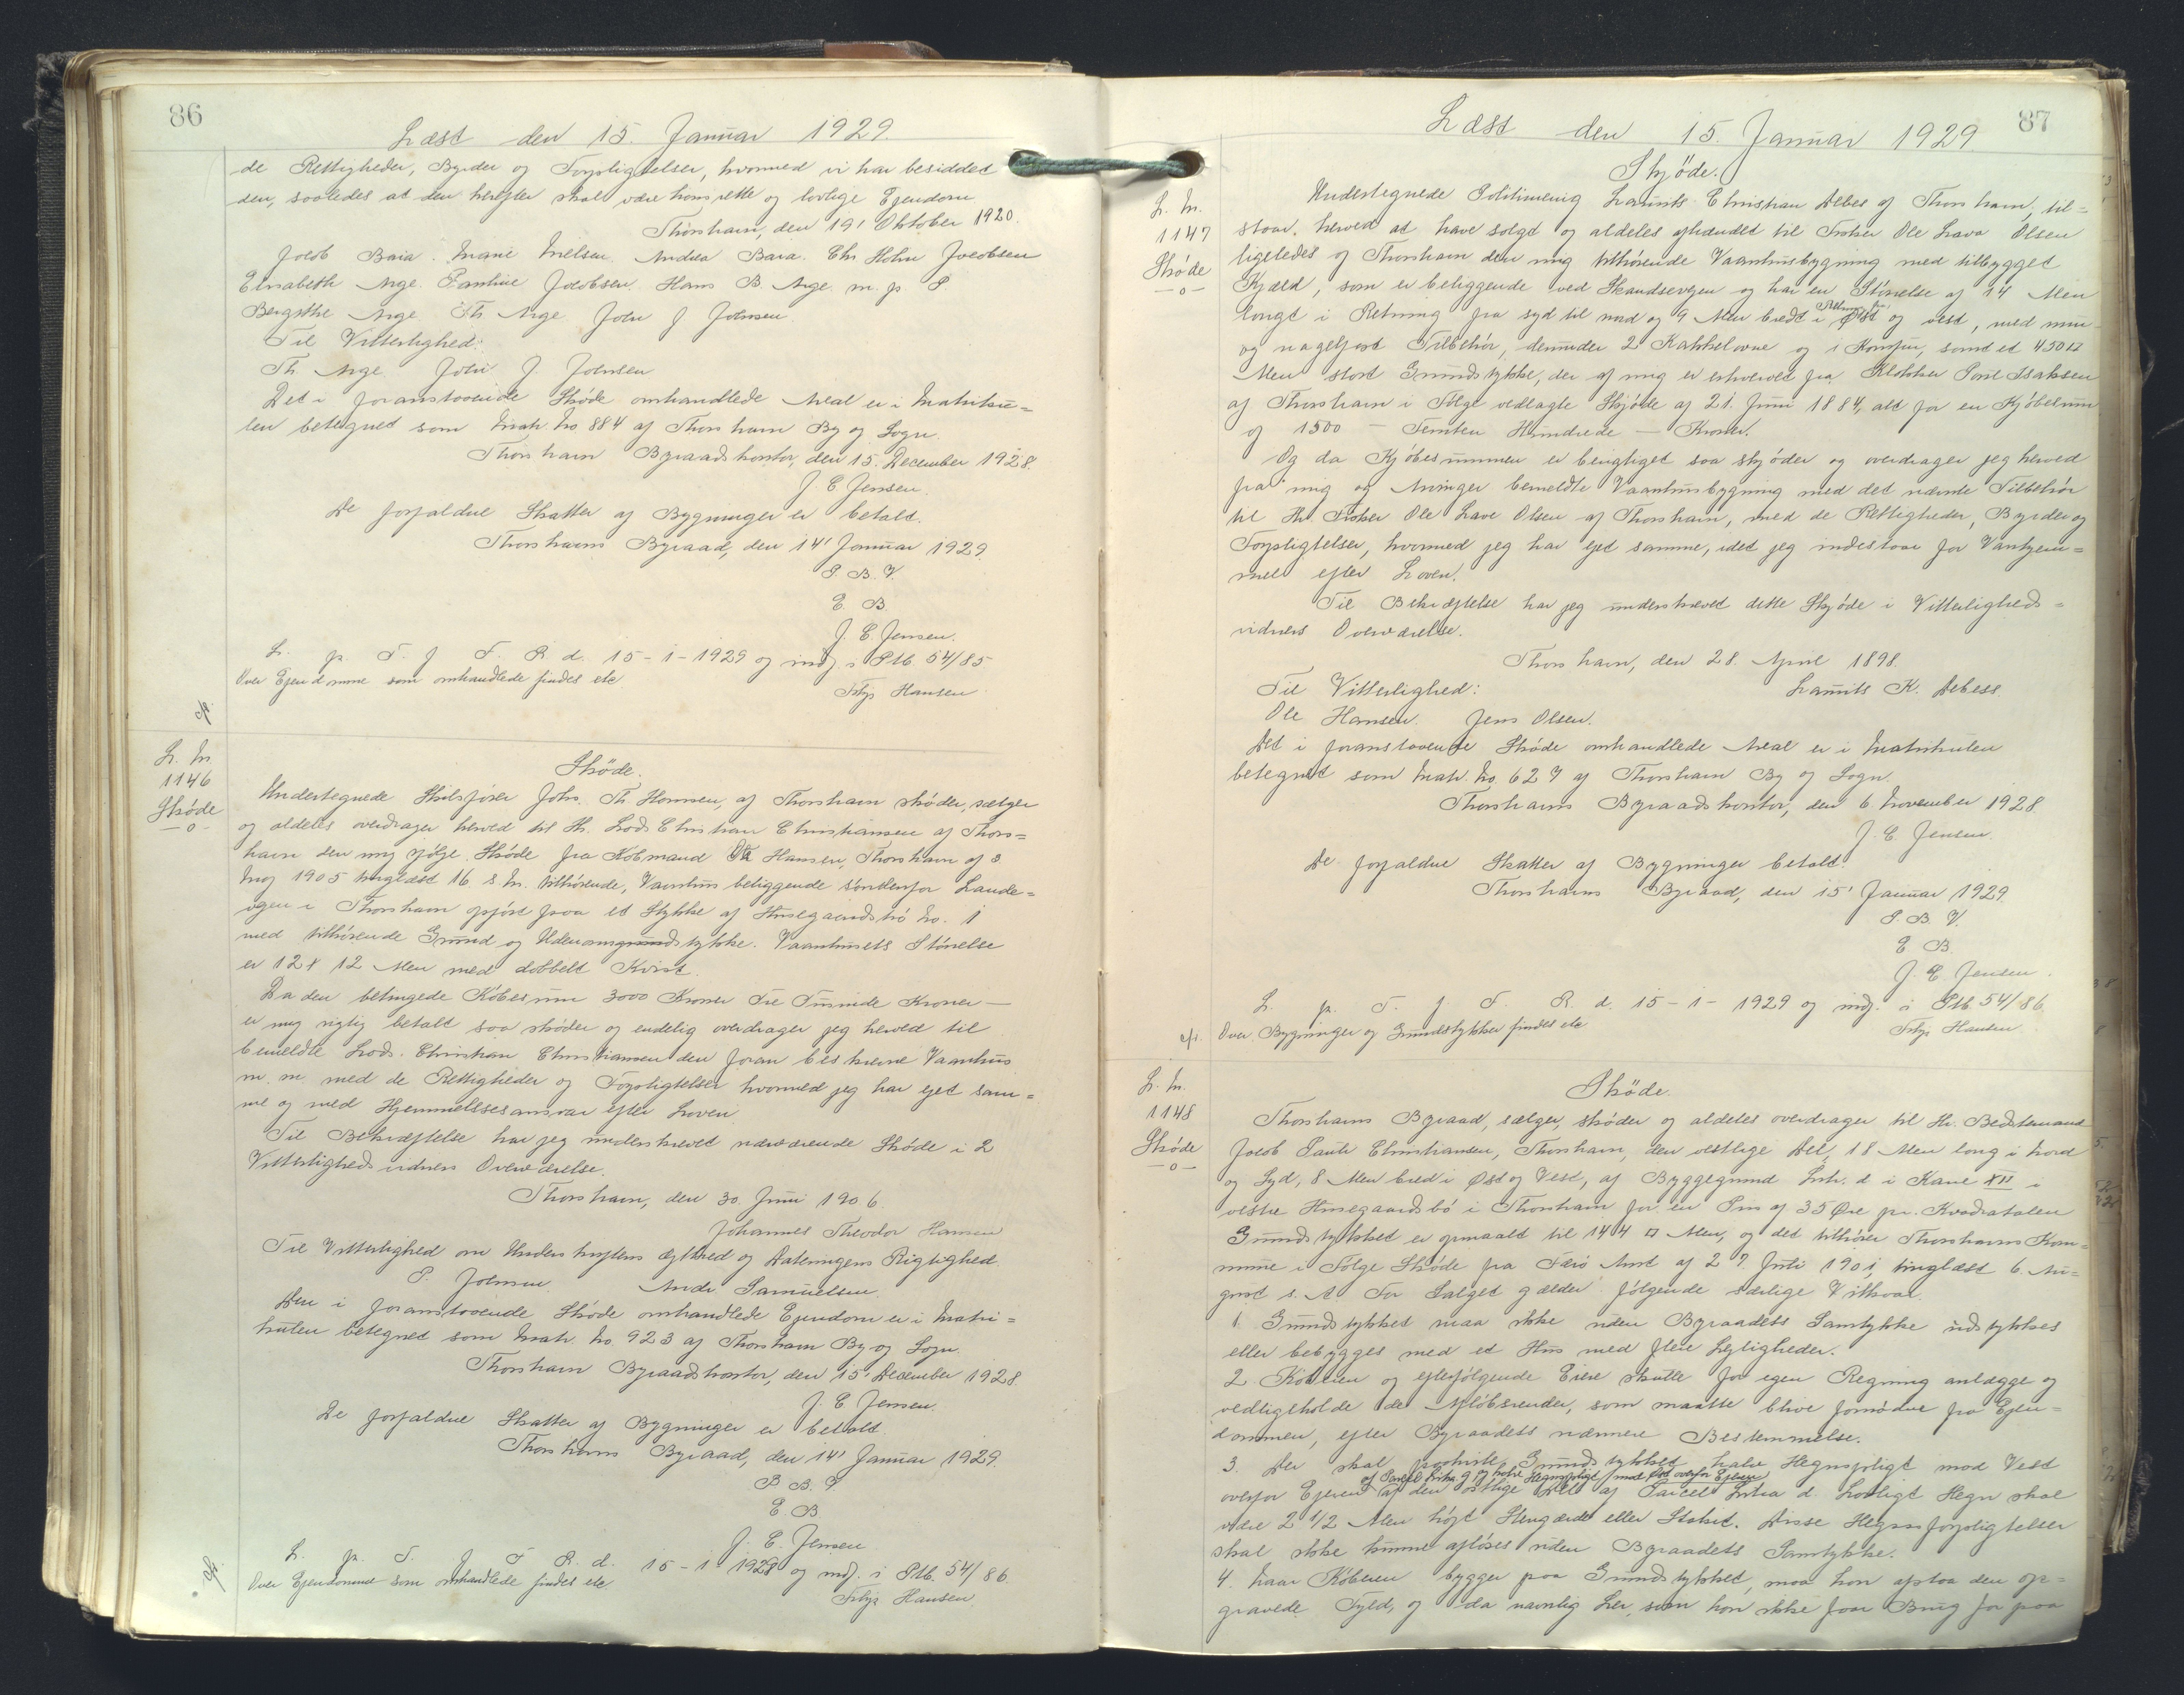 86
Læst den 15. Januar 1929.
de Rettigheder, Byrder og Forpligtelser, hvormed vi har besiddet
den, saaledes at den herefter skal være hans rette og lovlige Ejendom
Thorshavn, den 19' Oktober 1920.
Jacob Baia. Marie Nielsen. Andrea Baia. Chr Holm Jacobsen
Elisabeth Arge. Jacobsen. Hans B. Arge. m. p. P
Arge. Th. Arge. John J Johnsen
Til Vitterlighed:
Th. Arge. John J. Johnsen
Det i foranstaaende Skøde omhandlede Areal er i Matriku=
len betegnet som Matr. No. 884 af Thorshavn By og Sogn.
Thorshavn Byraadskontor, den 15. December 1928.
J. C. Jensen.
De forfaldne Skatter af Bygninger er betalt.
Thorshavns Byraad, den 14' Januar 1929.
P. B. V.
E. B.
J. C. Jensen.
L. p. T. f F. R. d. 15-1-1929 og indf i Ptb. 54/85
Over Ejendomme som omhandlede findes etc
Hansen
L. No.
1146
Skøde
-o-
Skøde.
Undertegnede Skibsfører Johs. Th. Hansen, af Thorshavn skøder, sælger
og aldeles overdrager herved til Hr. Lods Christian Christiansen af Thors=
havn den mig ifølge Skøde fra Købmand Hansen, Thorshavn af 3
Maj 1905 tinglæst 16. s. M. tilhørende, Vaanhus beliggende søndenfor Lande=
vejen i Thorshavn opført paa et Stykke af Husegaardsbø No. 1
med tilhørende Grund og Udenomsgrundstykke. Vaanhusets Størrelse
er 12 x 12 Alen med dobbelt Kvist.
Da den betingede Købesum 3000 Kroner Tre Tusinde Kroner —
er mig rigtig betalt saa skøder og endelig overdrager jeg herved til
bemeldte Lods. Christian Christiansen den foran beskrevne Vaanhus
m. m. med de Rettigheder og Forpligtelser hvormed jeg har ejet sam=
me og med Hjemmelssesansvar efter Loven
Til Bekræftelse har jeg underskrevet nærværende Skøde i 2
Vitterlighedsvidners Overværelse.
Thorshavn, den 30 Juni 1906.
Johannes Theodor Hansen
Til Vitterlighed om Underskriftens Ægthed og Dateringens Rigtighed.
P. Johnsen. Andr Samuelsen.
Den i foranstaaende Skøde omhandlede Ejendom er i Matri=
kulen betegnet som Matr No. 923 af Thorshavn By og Sogn.
Thorshavn Byraadskontor, den 15' December 1928.
J. C. Jensen.
De forfaldne Skatter af Bygninger er betalt.
Thorshavns Byraad, den 14' Januar 1929.
P. B. V
E. B.
J. C. Jensen
L. p. T. f F R. d. 15-1 1929 og indf. i Ptb. 54/86
Over Ejendomme som omhandlede findes etc
Hansen.
87
Læst den 15. Januar 1929
Skjøde.
L. No.
1147
Skøde
-o-
Undertegnede Politimenig Laurits Christian Debes af Thorshavn, til=
staar, herved at have solgt og aldeles afhændet til Fisker Ole Lava Olsen
ligeledes af Thorshavn den mig tilhørende Vaanhusbygning med tilbygget
Kjæld, som er beliggende ved Skandsevejen og har en Størrelse af 14 Alen
langt i Retning fra syd til nord og 9 Alen bredt i Retning fra Øst og vest, med mur
og nagelfast Tilbehør, derunder 2 Kakkelovne og 1 Komfur, samt et 450 □
Alen stort Grundstykke, der af mig er erhvervet fra Klokker Poul Isaksen
af Thorshavn i Følge vedlagte Skjøde af 21. Juni 1884, alt for en Kjøbesum
af 1500 — Femten Hundrede — Kroner.
Og da Kjøbesummen er berigtiget saa skjøder og overdrager jeg herved
fra mig og Arvinger bemeldte Vaanhusbygning med det nævnte Tilbehør
til Hr. Fisker Ole Lave Olsen af Thorshavn, med de Rettigheder, Byrder og
Forpligtelser, hvormed jeg har ejet samme, idet jeg indestaar for Vanhjem=
mel efter Loven.
Til Bekræftelse har jeg underskrevet dette Skjøde i Vitterligheds=
vidners Overværelse.
Thorshavn, den 28. April 1898.
Til Vitterlighed: Laurits K. Debess.
Ole Hansen. Jens Olsen.
Det i foranstaaende Skøde omhandlede Areal er i Matrikulen
betegnet som Matr. No 627 af Thorshavn By og Sogn.
Thorshavns Byraadskontor, den 6 November 1928.
J. C. Jensen.
De forfaldne Skatter af Bygninger betalt.
Thorshavns Byraad, den 15' Januar 1929.
P. B. V.
E B.
J. C. Jensen.
L. p. T. f. F. R. d. 15-1-1929 og indf. i Ptb. 54/86.
Over Bygninger og Grundstykker findes etc
Hansen.
L. No.
1148
Skøde
-o-
Skøde.
Thorshavns Byraad, sælger, skøder og aldeles overdrager til Hr. Bedstemand
Jacob Pauli Christiansen, Thorshavn, den vestlige Del, 18 Alen lang i Nord
og Syd, 8 Alen bred i Øst og Vest, af Byggegrund Litr. d i Karré XII i
vestre Husegaardsbø i Thorshavn for en Pris af 35 Øre pr. Kvadratalen
Grundstykket er opmaalt til 144 □ Alen, og det tilhører Thorshavns Kom=
mune i Følge Skøde fra Færø Amt af 27. Juli 1901, tinglæst 6. Au=
gust s. A. For Salget gælder følgende særlige Vilkaar.
1. Grundstykket maa ikke uden Byraadets Samtykke udstykkes
eller bebygges med et Hus med flere Lejligheder.
2. Køberen og efterfølgende Ejere skulle for egen Regning anlægge og
vedligeholde de Afløbsrender, som maatte blive fornødne fra Ejen=
dommen, efter Byraadets nærmere Bestemmelse.
3. Der skal paahvile Grundstykket halv Hegnspligt mod Vest
overfor Ejeren af Parcel Litra g og halv Hegnspligt mod Øst overfor Ejeren af den østlige Del af Parcel Litra d. Lovligt Hegn skal
være 2 1/2 Alen højt Stengærde eller Stakit. Disse Hegnsforpligtelser
skal ikke kunne afløses uden Byraadets Samtykke.
4. Naar Køberen bygger paa Grundstykket, maa han afstaa den op=
gravede Fyld, og da navnlig Ler, som han ikke faar Brug for paa